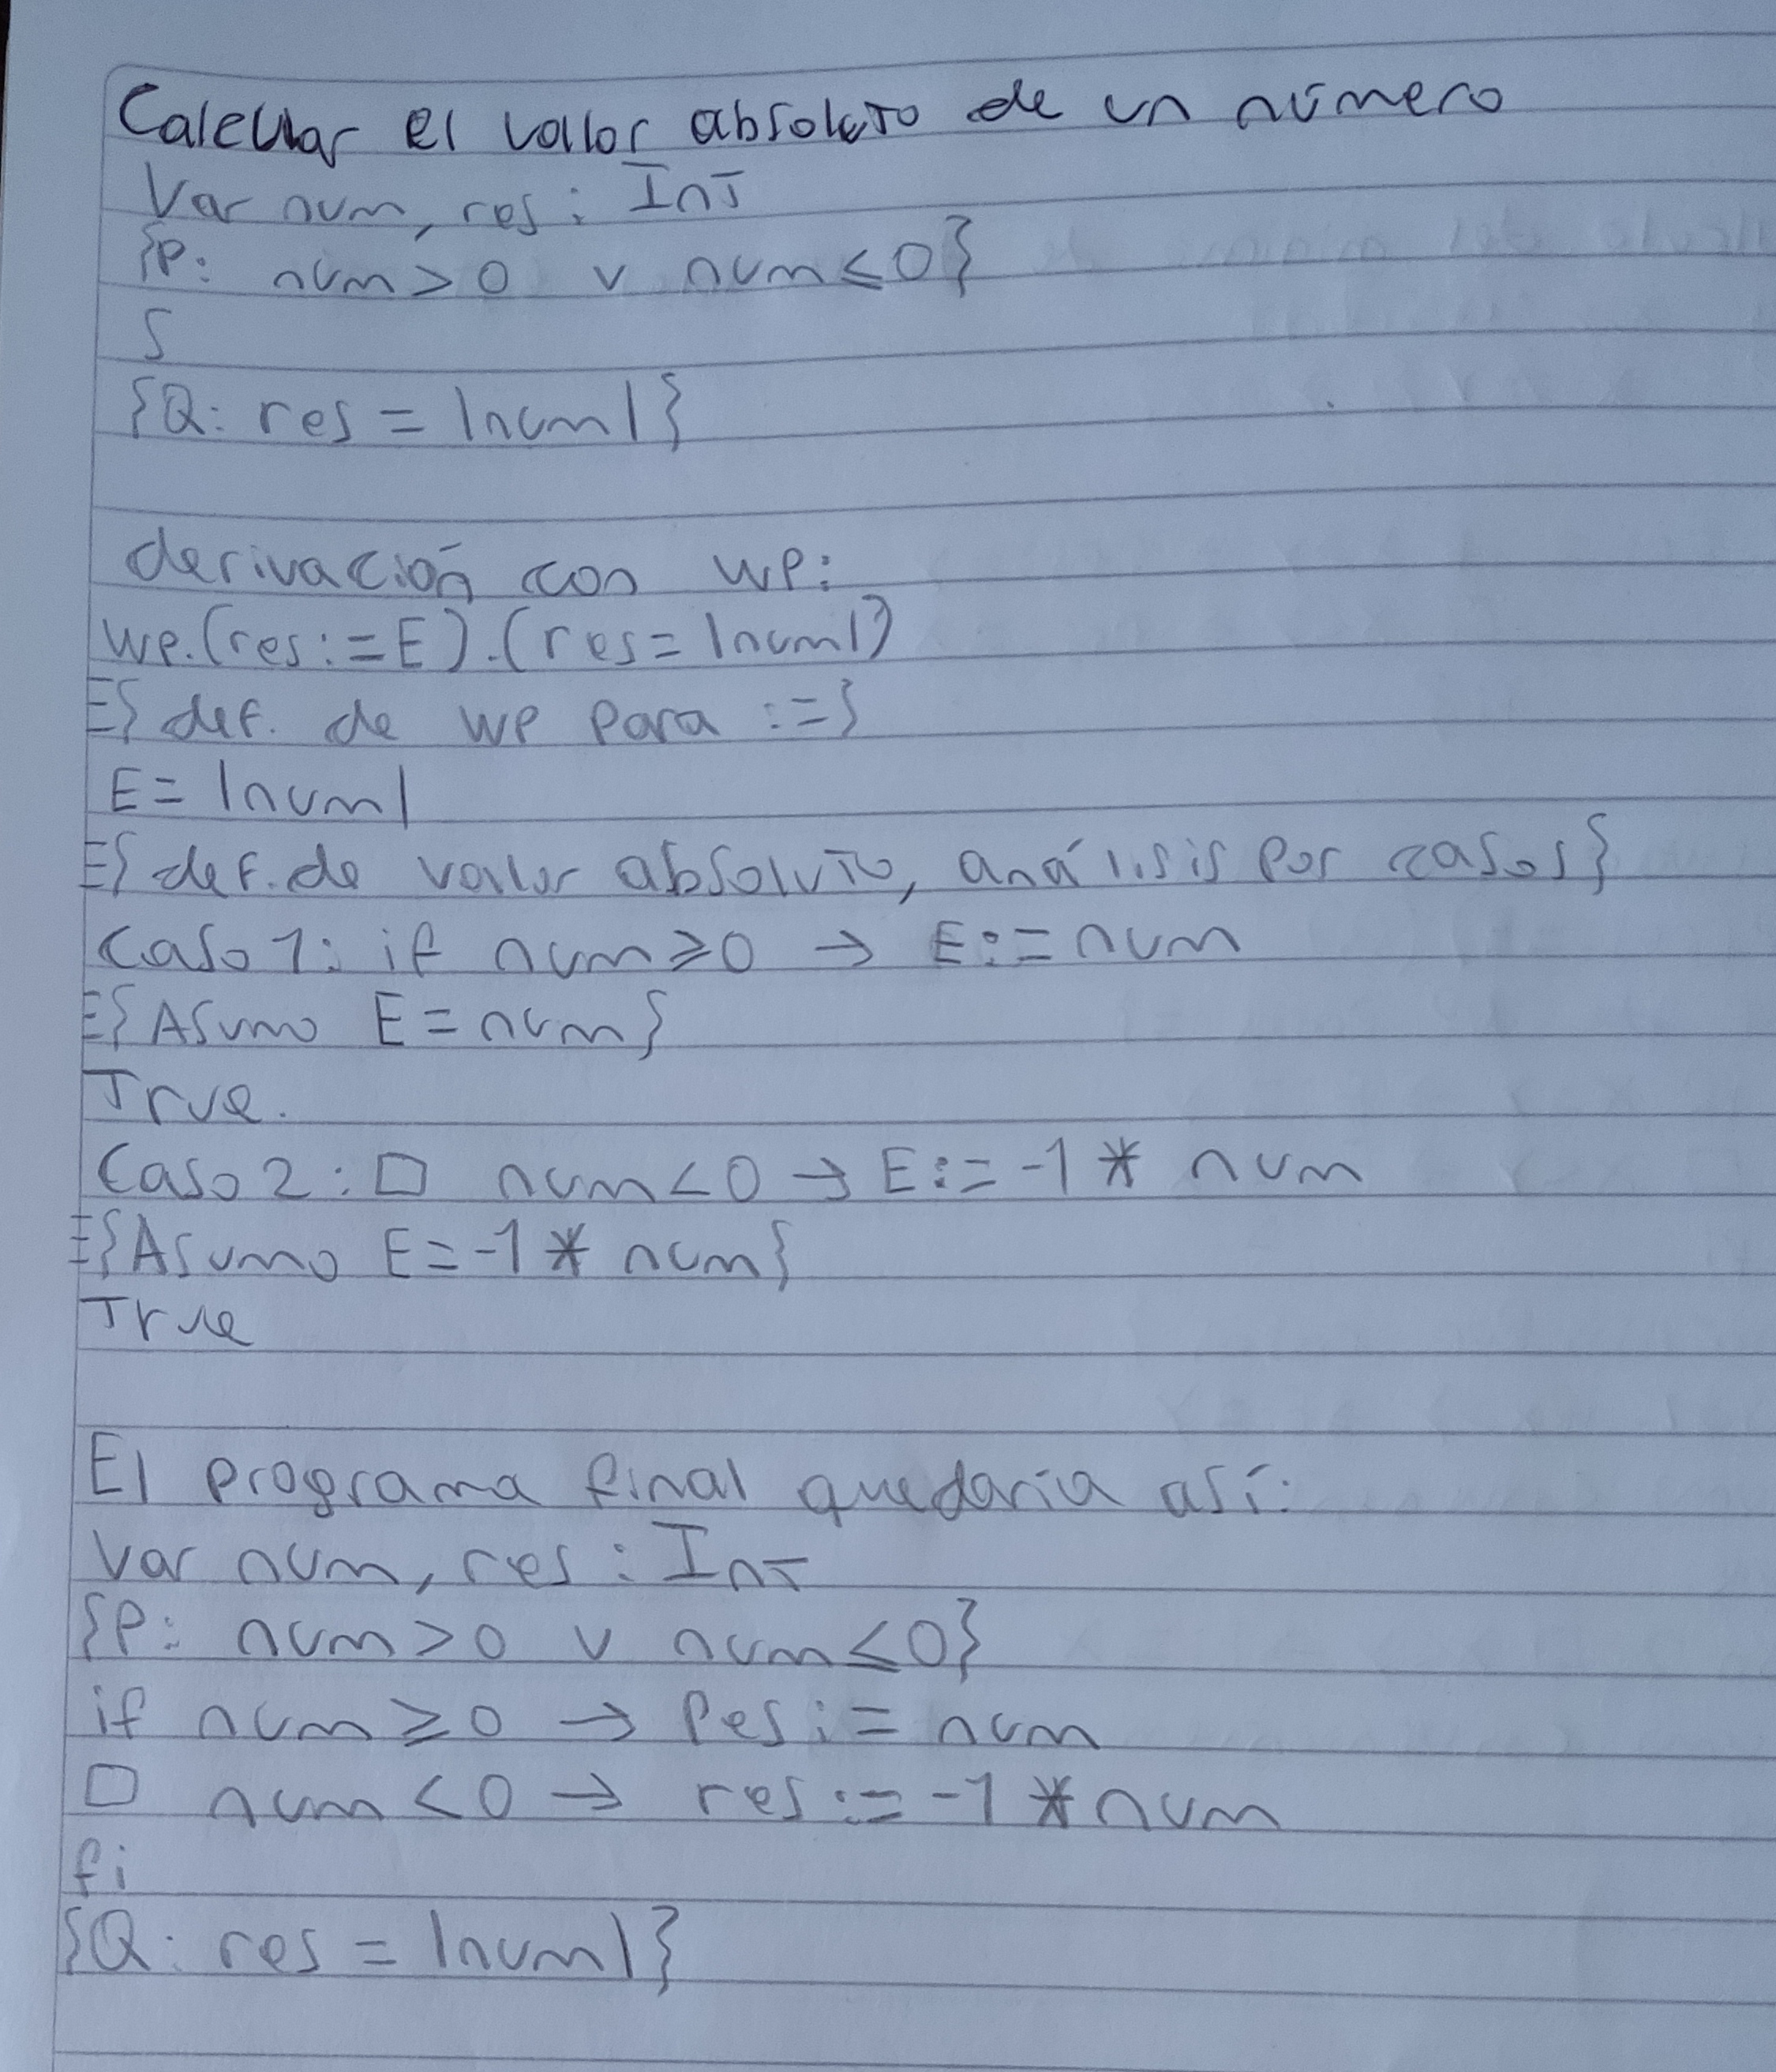 Calcular el valor absoluto de un número
Var num, res: Int
{P: num > 0 ∨ num ≤ 0}
S
{Q: res = |num|}
derivación con wp:
wp.(res:=E).(res=|num|)
≡{def. de wp para :=}
E = |num|
≡{def. de valor absoluto, análisis por casos}
Caso 1: if num ≥ 0 → E:= num
≡{Asumo E = num}
True.
Caso 2: □ num < 0 → E:= -1 * num
≡{Asumo E = -1 * num}
True
El programa final quedaría así:
Var num, res: Int
{P: num > 0 ∨ num ≤ 0}
if num ≥ 0 → res:= num
□ num < 0 → res:= -1 * num
fi
{Q: res = |num|}